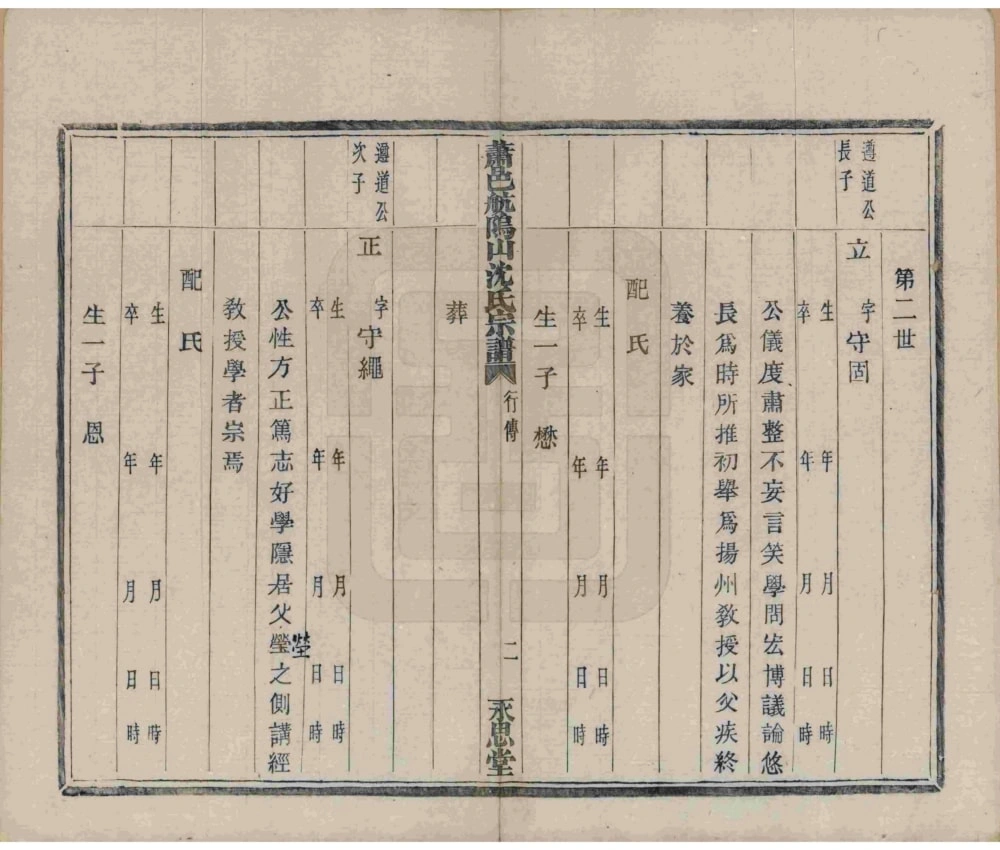 第二世
遵道公
長子
立 字守固
生 年 月 日 時
卒 年 月 日 時
公儀度肅整不妄言笑學問宏博議論悠
長爲時所推初舉爲揚州教授以父疾終
養於家
配 氏
生 年 月 日 時
卒 年 月 日 時
生一子 懋
蕭邑航塢山沈氏宗譜 行傳 二 永思堂
葬
遵道公
次子
正 字守繩
生 年 月 日 時
卒 年 月 日 時
公性方正篤志好學隱居父瑩之側講經
塋
教授學者崇焉
配 氏
生 年 月 日 時
卒 年 月 日 時
生一子 恩